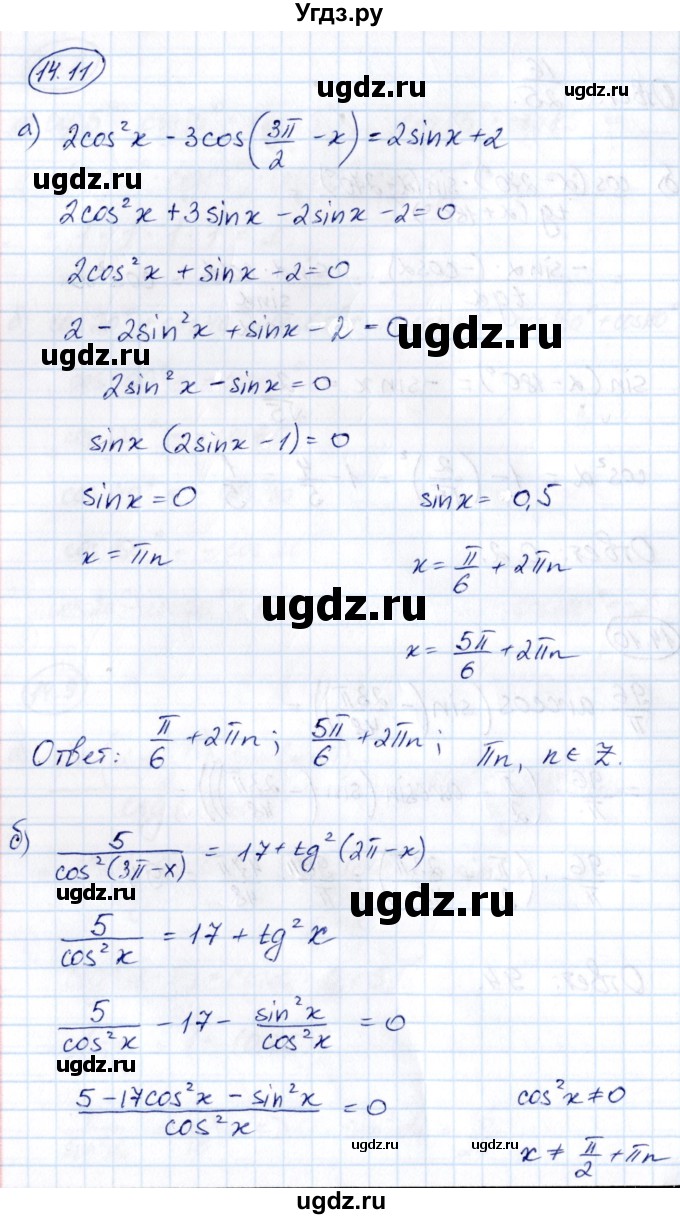 Угдз.ру
14.11
ugdz.ru
ugdz.ru
а) 2cos²x - 3cos(3π/2 - x) = 2sinx + 2
ugdz.ru
2cos²x + 3sinx - 2sinx - 2 = 0
2cos²x + sinx - 2 = 0
2 - 2sin²x + sinx - 2 = 0
ugdz.ru
ugdz.ru
2sin²x - sinx = 0
sinx (2sinx - 1) = 0
sinx = 0 sinx = 0,5
x = πn x = π/6 + 2πn
ugdz.ru
x = 5π/6 + 2πn
Ответ: π/6 + 2πn; 5π/6 + 2πn; πn, n ∈ Z.
б) 5/cos²(3π-x) = 17 + tg²(2π-x)
ugdz.ru
ugdz.ru
5/cos²x = 17 + tg²x
5/cos²x - 17 - sin²x/cos²x = 0
ugdz.ru
(5 - 17cos²x - sin²x)/cos²x = 0 cos²x ≠ 0
ugdz.ru
ugdz.ru
x ≠ π/2 + πn
ugdz.ru